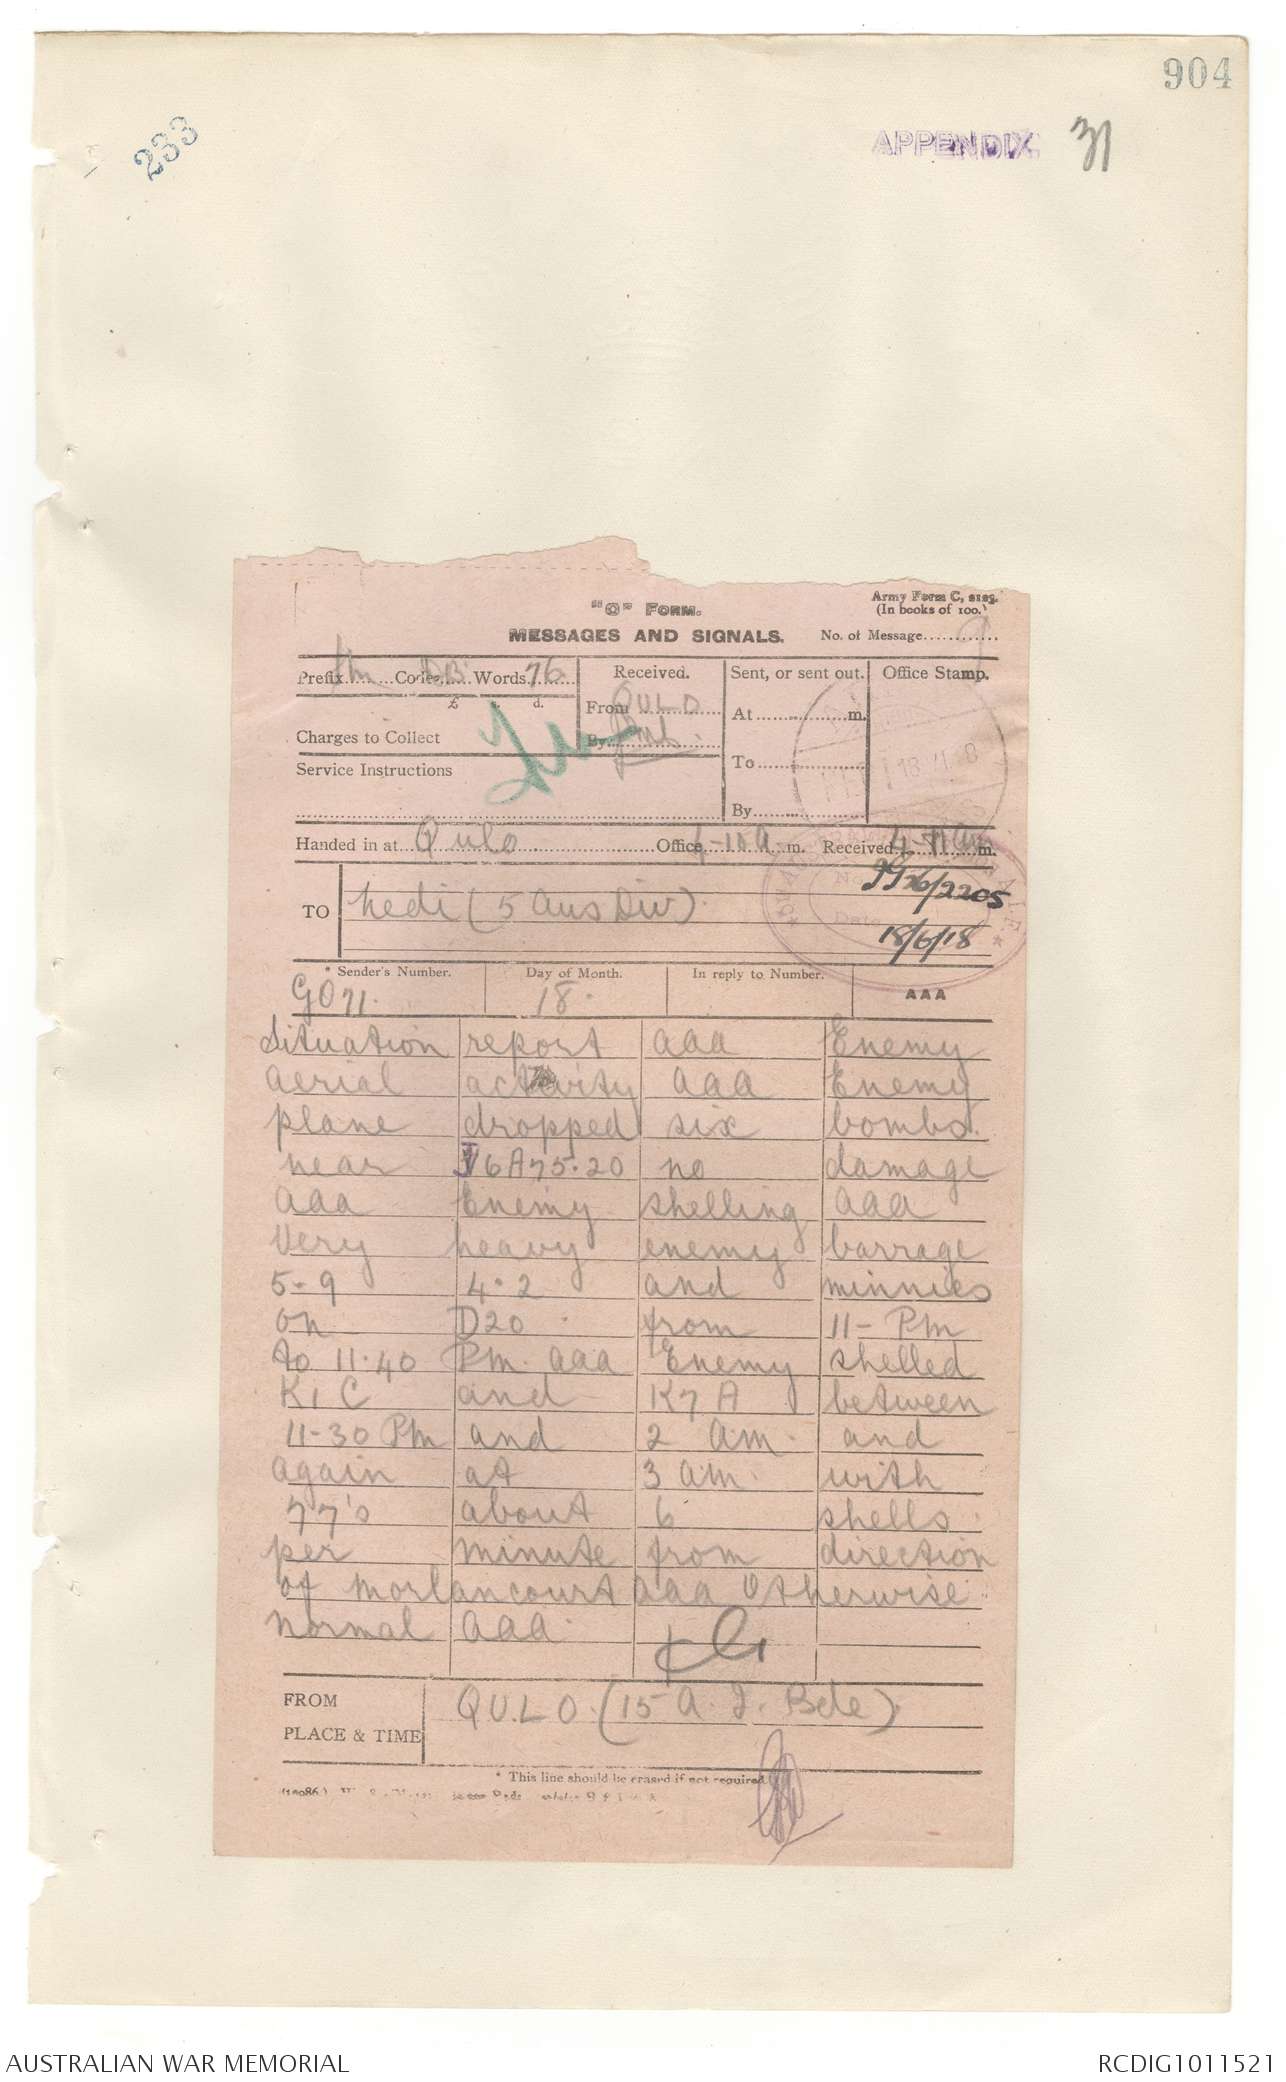 904
233
APPENDIX. 31
"C" FORM.
Army Form C, 2123.
(In books of 100.)
MESSAGES AND SIGNALS. No. of Message
Prefix Code DB Words 76
Received. Sent, or sent out. Office Stamp.
£ s. d.
From QULO
At m.
Charges to Collect
By
Service Instructions
To
By
18.VI.18
Handed in at Qulo Office 4-10 A m. Received 4- Am m.
TO hedi (5 Aus Div)
2205
18/6/18
* Sender's Number. Day of Month. In reply to Number. AAA
GO71. 18.
Situation report aaa Enemy
aerial activity aaa Enemy
plane dropped six bombs
near J6A75.20 no damage
aaa Enemy shelling aaa
Very heavy enemy barrage
5.9 4.2 and minnies
on D20 from 11- Pm
to 11.40 Pm aaa Enemy shelled
K1C and K7A between
11-30 Pm and 2 am and
again at 3 am with
77's about 6 shells
per minute from direction
of Morlancourt aaa Otherwise
normal aaa
FROM QULO (15 A.I. Bde)
PLACE & TIME
* This line should be erased if not required.
AUSTRALIAN WAR MEMORIAL RCDIG1011521